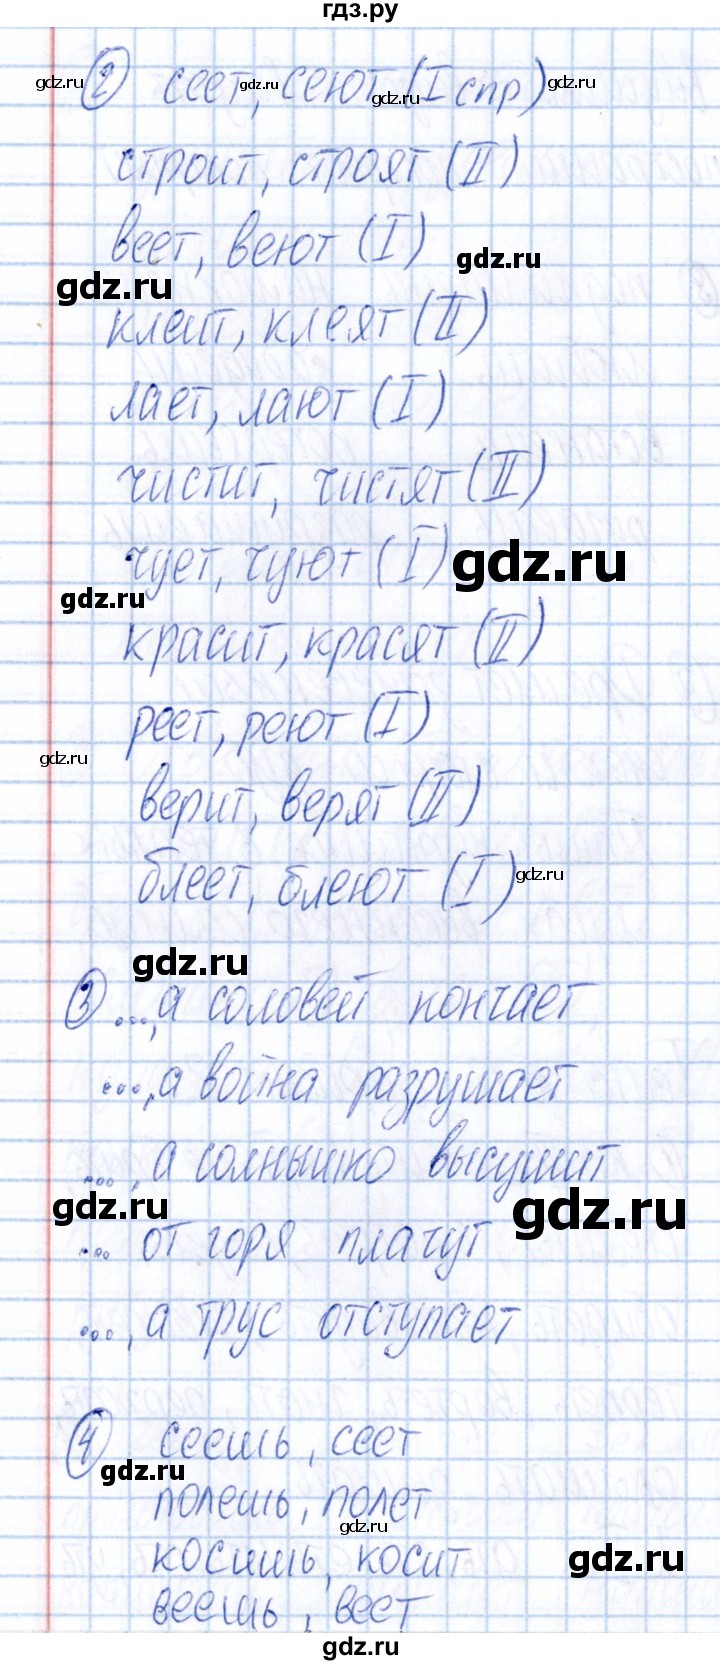 гдз.ру
2 сеет, сеют (I спр)
gdz.ru gdz.ru gdz.ru gdz.ru
строит, строят (II)
веет, веют (I)
gdz.ru
gdz.ru
клеит, клеят (II)
лает, лают (I)
чистит, чистят (II)
чует, чуют (I)
gdz.ru
gdz.ru
красит, красят (II)
реет, реют (I)
gdz.ru
верит, верят (II)
блеет, блеют (I)
gdz.ru
gdz.ru
3 ..., а соловей кончает
..., а война разрушает
..., а солнышко высушит
gdz.ru
gdz.ru
... от горя плачут
..., а трус отступает
4 сеешь, сеет
gdz.ru
полешь, полет
gdz.ru
косишь, косит
gdz.ru
веешь, веет
gdz.ru